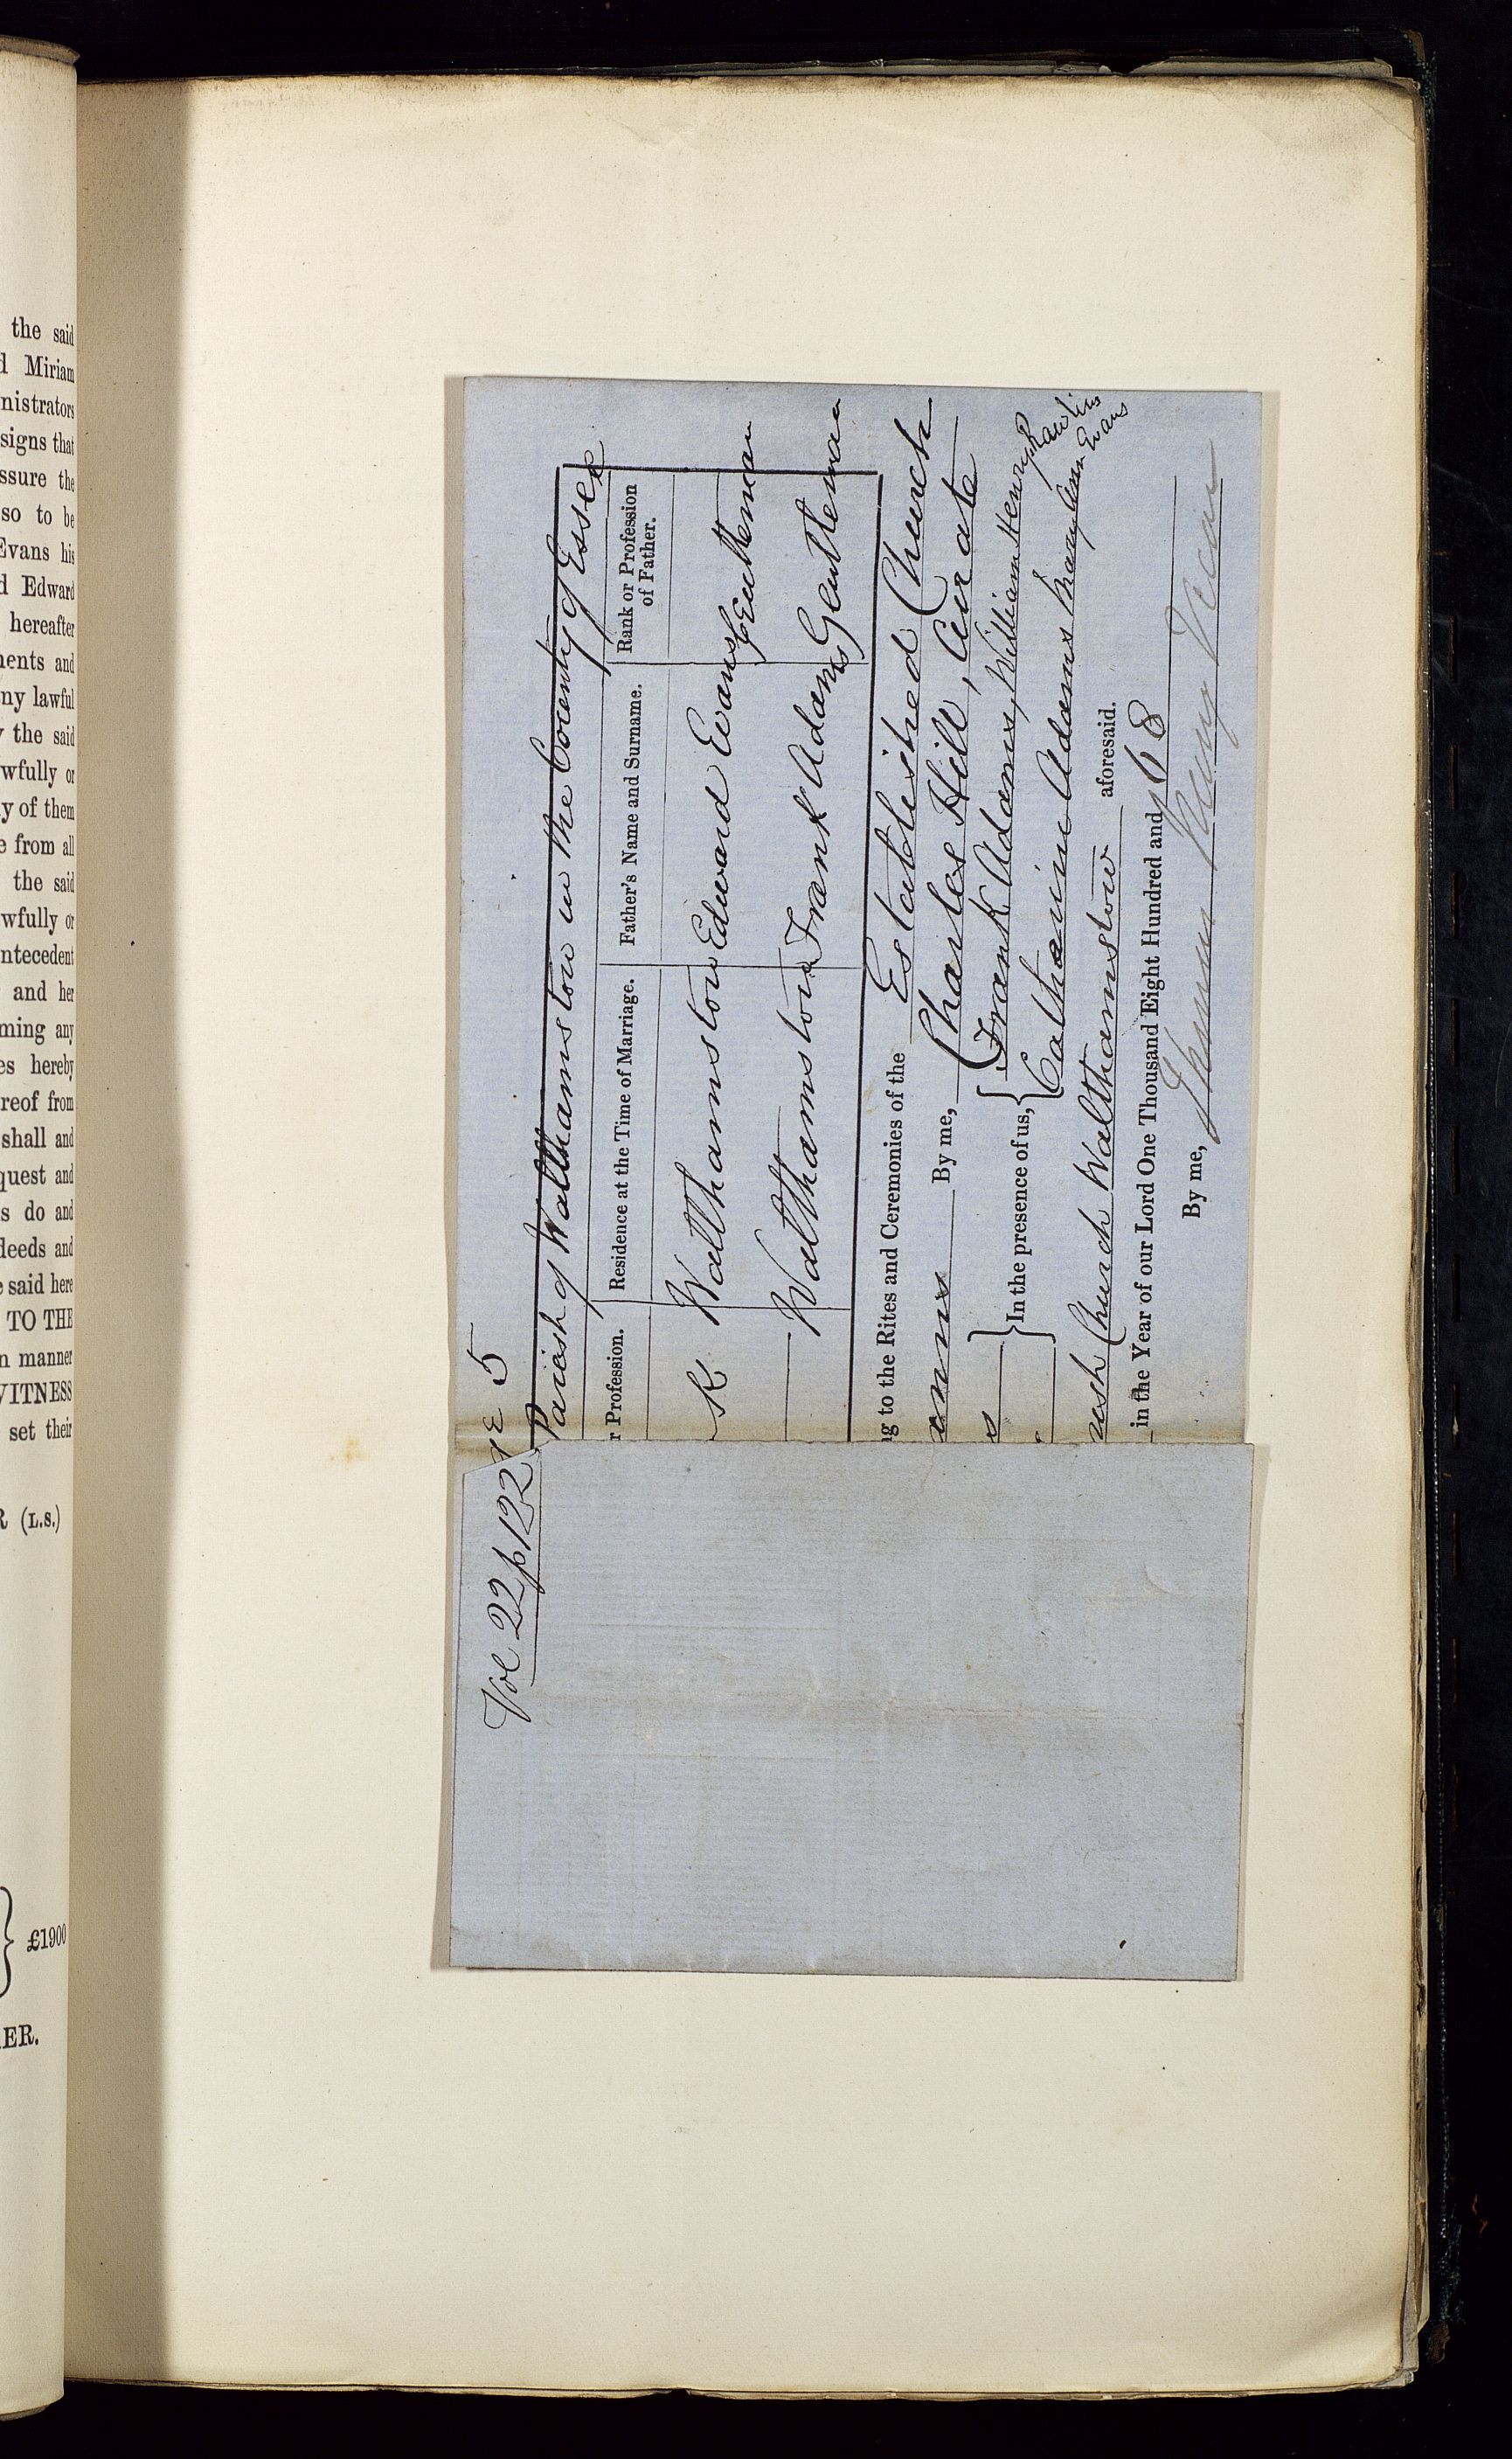 the said
d Miriam
nistrators
signs that
ssure the
so to be
Evans his
d Edward
hereafter
ments and
ny lawful
y the said
wfully or
y of them
e from all
the said
wfully or
ntecedent
and her
ming any
es hereby
reof from
shall and
quest and
s do and
deeds and
e said here
TO THE
n manner
WITNESS
set their
R (L.S.)
£1900
ER.
Vol 22 p 122
ge 5
Parish of Walthamstow in the County of Essex
r Profession. Residence at the Time of Marriage. Father's Name and Surname. Rank or Profession of Father.
k Walthamstow Edward Evans Gentleman
— Walthamstow Frank Adams Gentleman
ng to the Rites and Ceremonies of the Established Church
anns By me, Charles Hill, Curate
s } In the presence of us, { Frank Adams, William Henry Rawlins
Catharine Adams Mary Ann Evans
rish Church Walthamstow aforesaid.
in the Year of our Lord One Thousand Eight Hundred and 68
By me, Thomas Parry Vicar